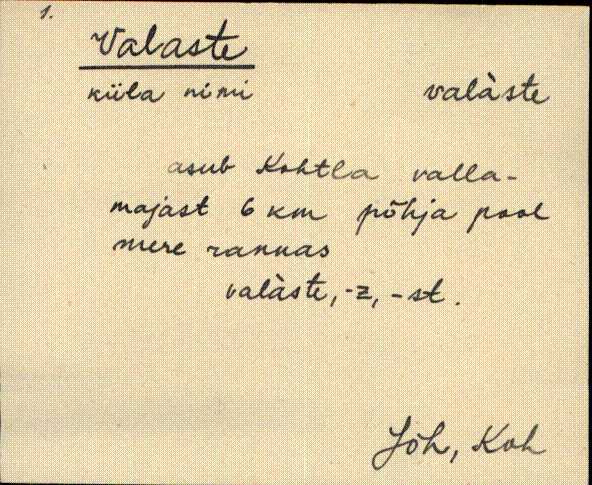 1.
Valaste
küla nimi valàste
asub Kohtla valla-
majast 6 km põhja pool
mere rannas
valàste, -z, -st.
Jõh, Koh